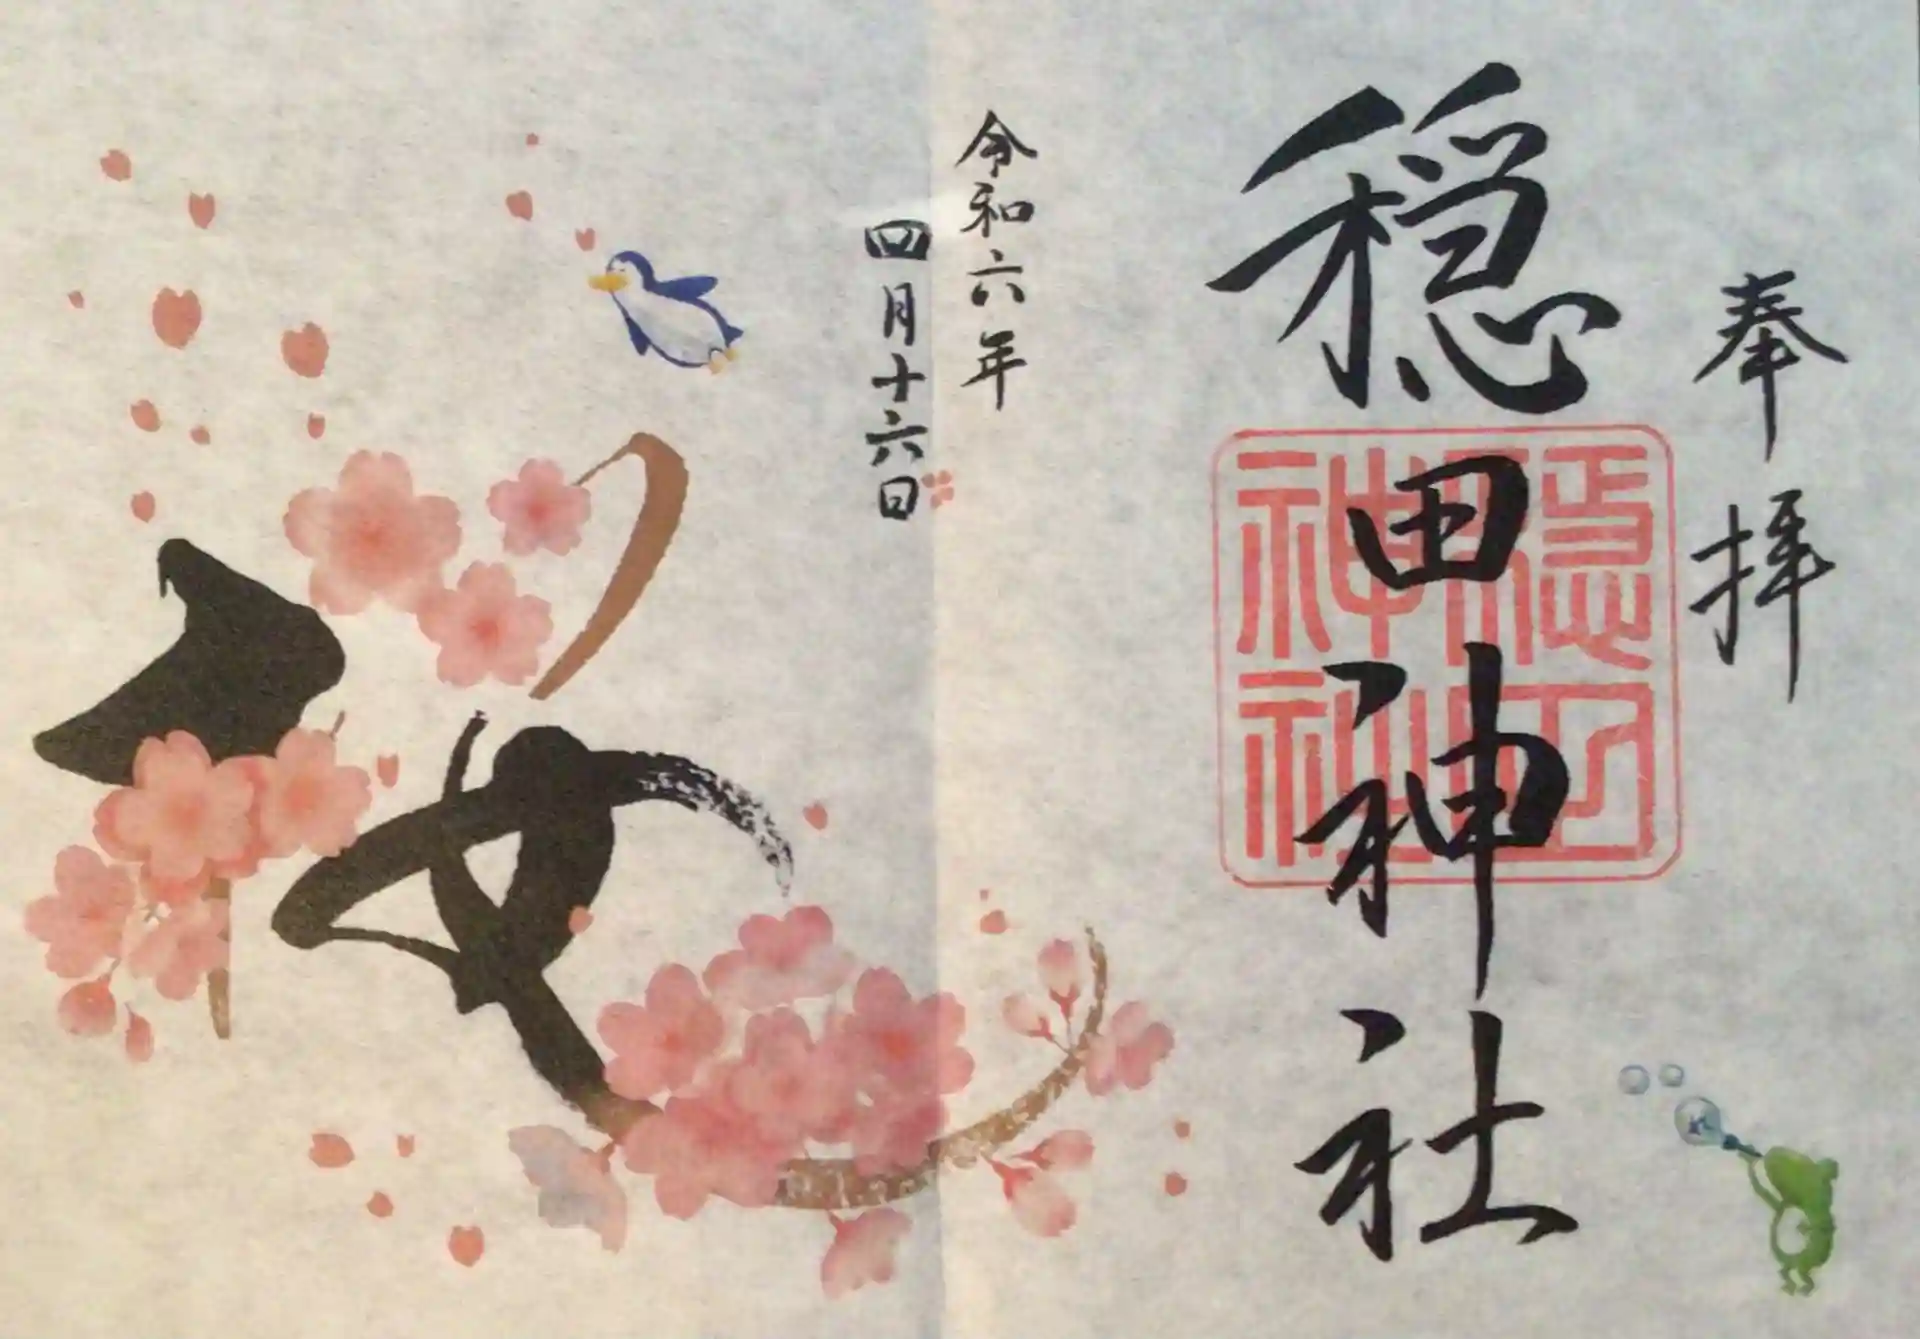 奉拝
穏田神社
穏田
神社
令和六年
四月十六日
桜